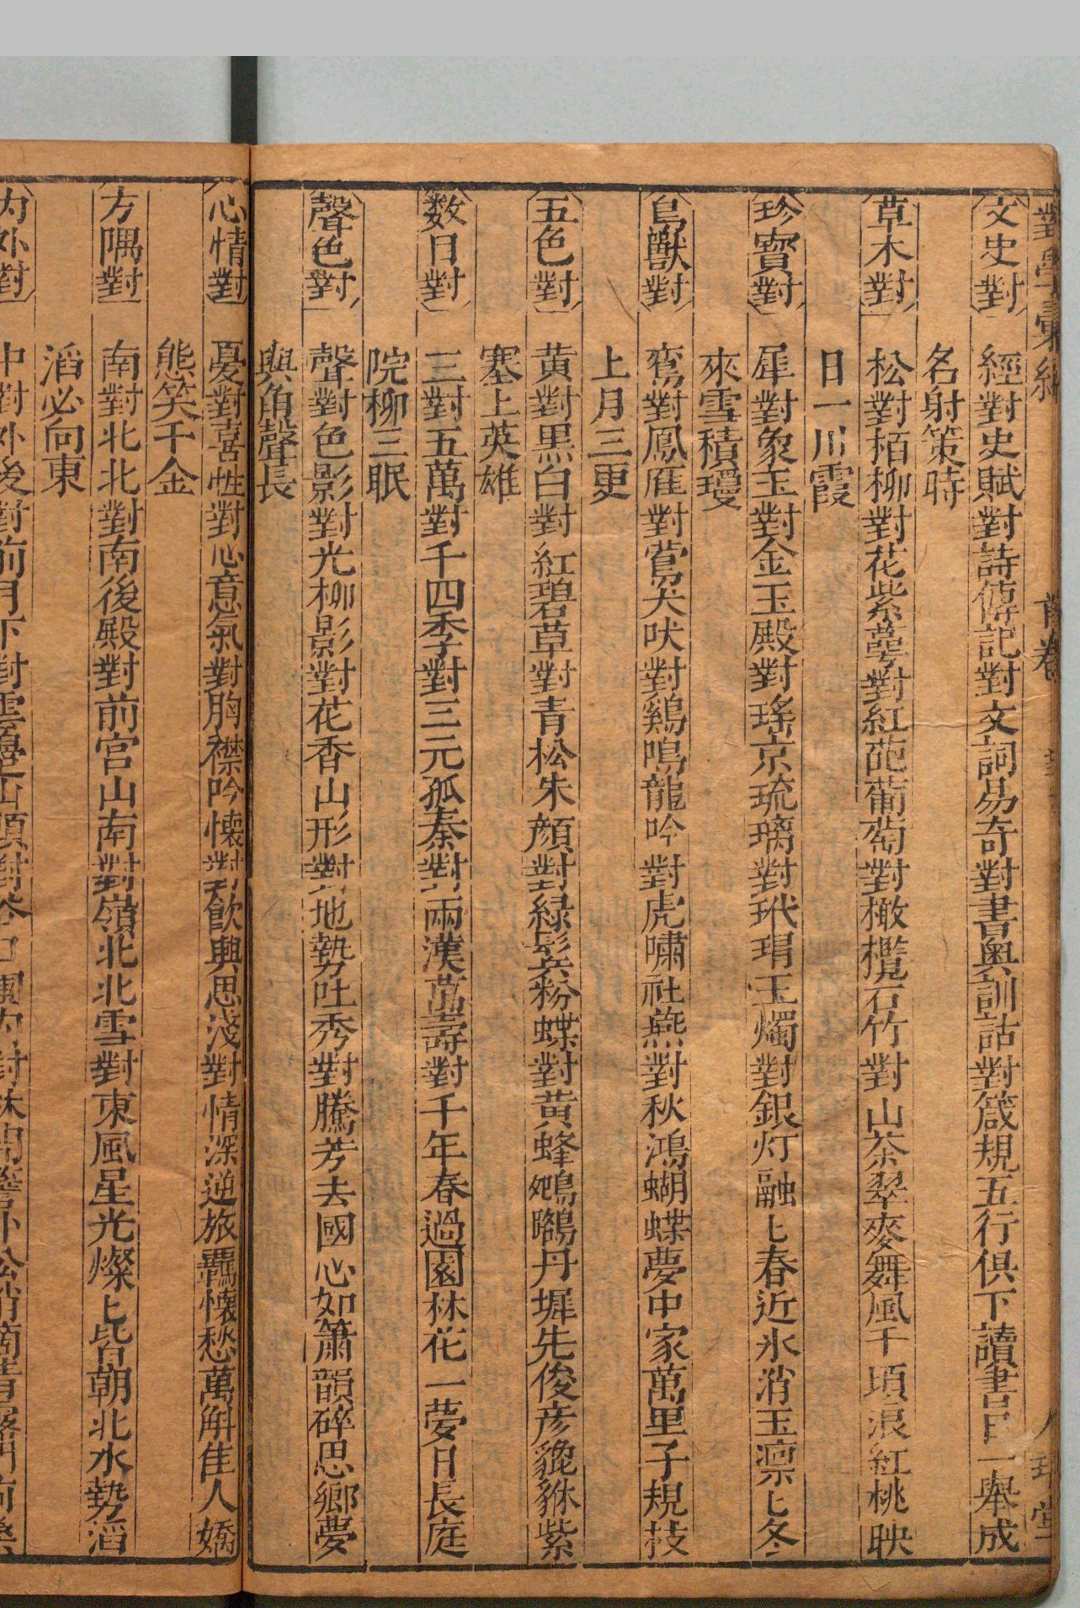 文史對 經對史賦對詩傳記對文詞易奇對書奧訓詁對箴規五行俱下讀書日一舉成
名射策時
草木對 松對栢柳對花紫蕚對紅葩葡萄對橄欖石竹對山茶翠麥舞風千頃浪紅桃映
日一川霞
珍寶對 犀對象玉對金玉殿對瑤京琉璃對玳瑁玉燭對銀灯融匕春近氷消玉凛匕冬
來雪積瓊
鳥獸對 鸞對鳳雁對鶯犬吠對鷄鳴龍吟對虎嘯社燕對秋鴻蝴蝶夢中家萬里子規技
上月三更
五色對 黄對黒白對紅碧草對青松朱顔對緑髩粉蝶對黄蜂鴝鵒丹墀先俊彦貔貅紫
塞上英雄
数目對 三對五萬對千四季對三元孤秦對兩漢萬壽對千年春過園林花一夢日長庭
院柳三眠
聲色對 聲對色影對光柳影對花香山形對地勢吐秀對騰芳去國心如簫韻碎思鄉夢
與角聲長
心情對 憂對喜性對心意氣對胸襟吟懷對飲興思淺對情深逆旅羈懷愁萬斛佳人嬌
態笑千金
方隅對 南對北北對南後殿對前宮山南對嶺北北雪對東風星光燦匕皆朝北水勢滔
滔必向東
内外對 中對外後對前月下對雲邊山頂對